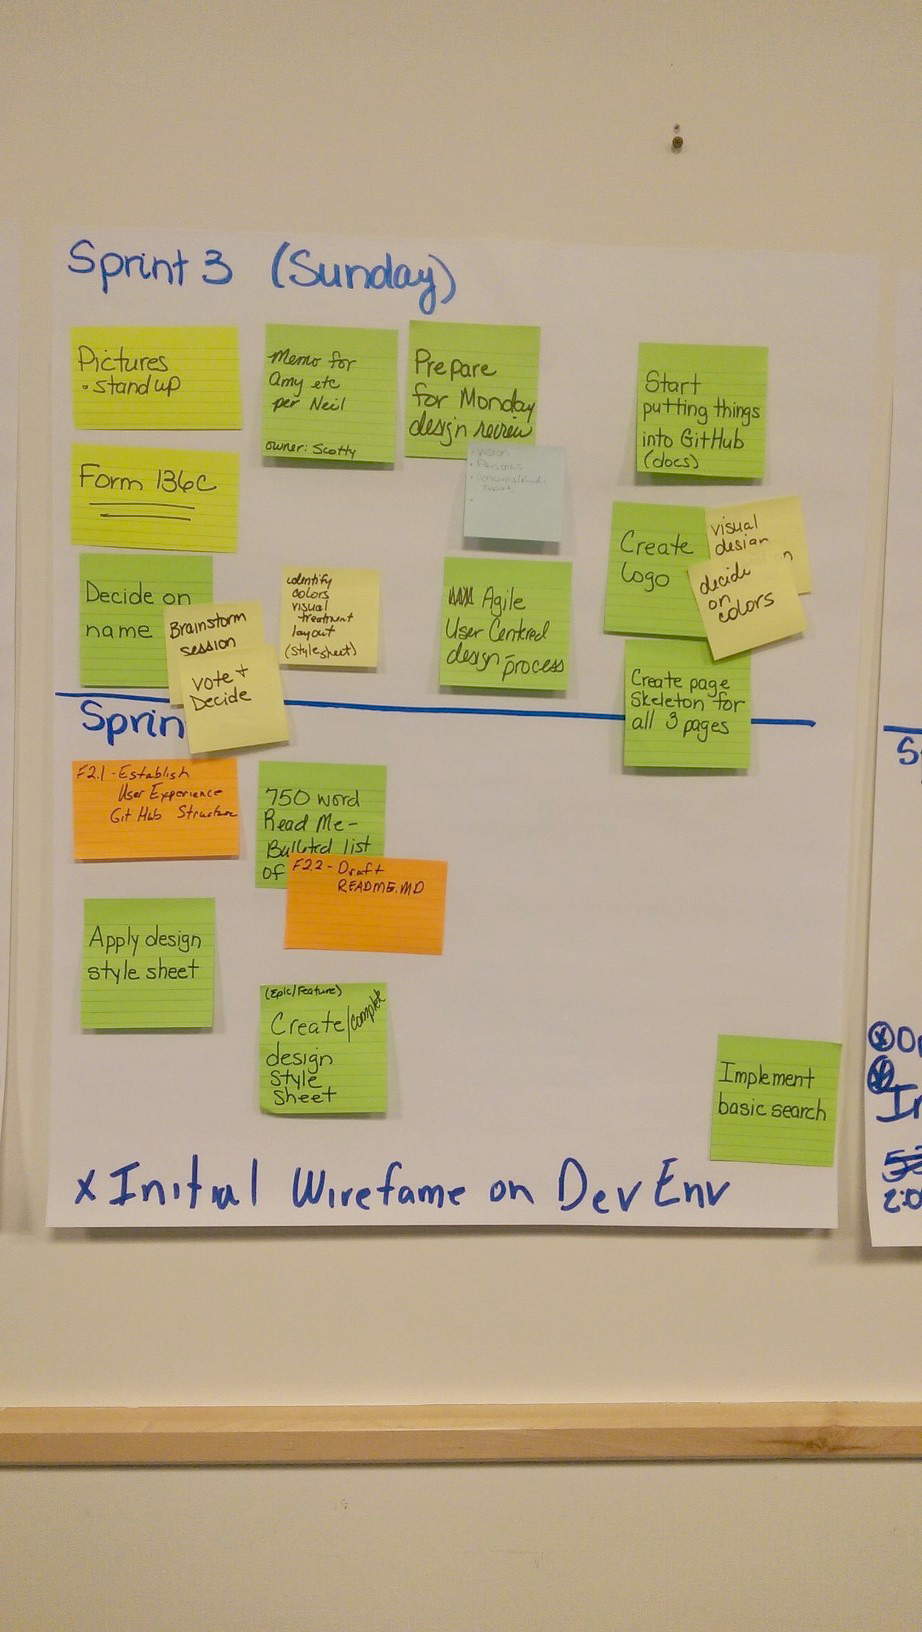 Sprint 3 (Sunday)
Pictures
• stand up
Memo for
Amy etc
per Neil
owner: Scotty
Prepare
for Monday
design review
Start
putting things
into GitHub
(docs)
Form 136C
• Personas
Create
logo
visual
design
decide
on
colors
Decide on
name
Brainstorm
session
vote +
Decide
identify
colors
visual
treatment
layout
(stylesheet)
Agile
User Centred
design process
Create page
Skeleton for
all 3 pages
Sprin
F2.1 - Establish
User Experience
GitHub Structure
750 word
Read Me -
Bulleted list
of
F2.2 - Draft
README.MD
Apply design
style sheet
(Epic/Feature)
Create/complete
design
style
sheet
Implement
basic search
x Initial Wirefame on Dev Env
2:0